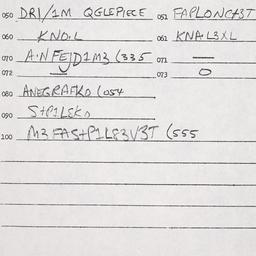 050 DRI/1M QGLEPIECE 051 FAPLONCH3T
060 KNO.L 061 KNA.L3XL
070 A.NFEJD1M3 (335 071 —
072 — 073 O
080 ANEGRAFKO (054
090 S+P1LSKO
100 M3FAS+P1L83V3T (555